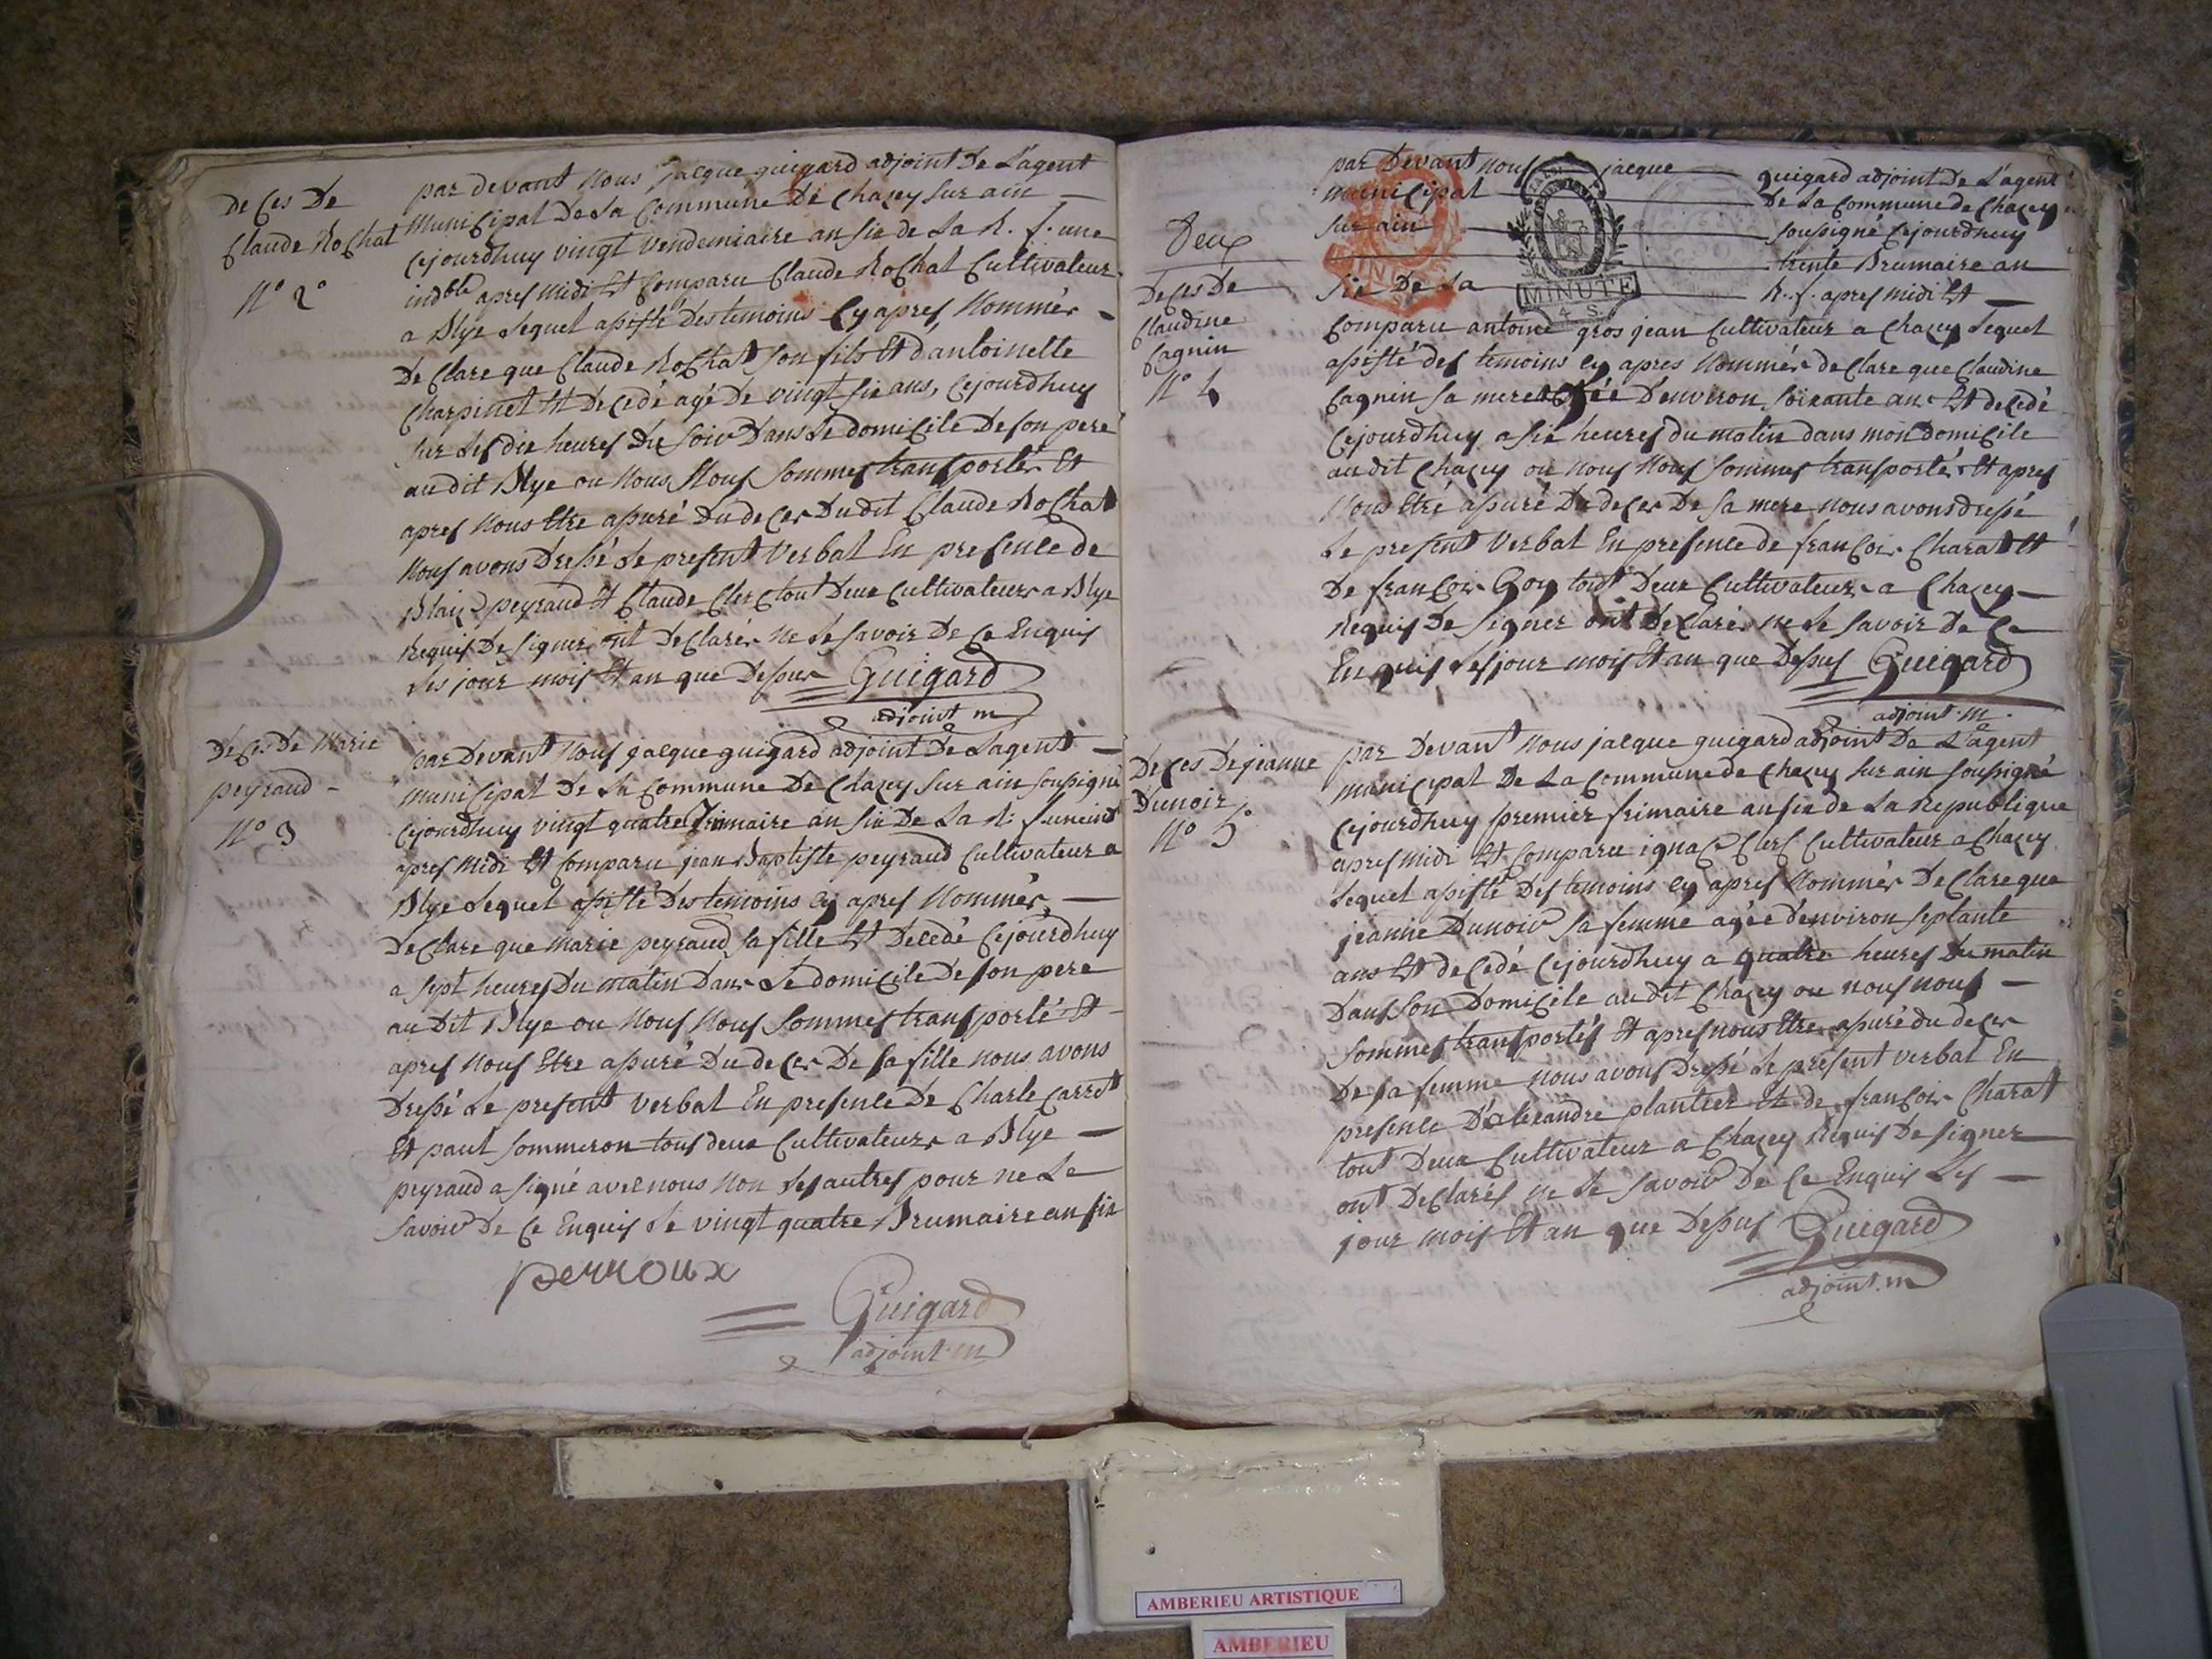 Deces De
Claude Rochat
N° 2°
par devant Nous jacque guigard adjoint De L'agent
Municipal De La Commune De Chazey Sur ain
Cejourdhuy vingt vendemiaire an six de La R. f. une
indble apres midi Est Comparu Claude Rochat Cultivateur
a Blye Lequel assisté Des temoins Cy apres Nommés
De Clare que Claude Rochat Son fils Et d'antoinette
Charpinet Est Decedé agé De vingt six ans, Cejourdhuy
Sur Les dix heures du Soir Dans Le domicile De son pere
au dit Blye ou Nous Nous Sommes transportés Et
apres Nous Etre assuré Du deces Du dit Claude Rochat
Nous avons Dressé Le present Verbal En presence de
Blaize peyraud Et Claude Clerc tout Deux Cultivateurs a Blye
Requis De Signer ont Declarés Ne Le Savoir De Ce Enquis
Les jour mois Et an que Dessus Guigard
adjoint m
Deces De Marie
peyraud
N° 3
par Devant Nous jacque guigard adjoint De L'agent
Municipal De La Commune De Chazey Sur ain Soussigné
Cejourdhuy vingt quatre an Six De La R: f.
apres Midi Est Comparu jean Baptiste peyraud Cultivateur a
Blye Lequel assisté Des temoins Cy apres Nommés
De Clare que Marie peyraud sa fille Est Decedé Cejourdhuy
a Sept heures Du matin Dans Le domicile De son pere
au Dit Blye ou Nous Nous Sommes transporté Et
apres Nous Etre assuré Du deces De sa fille nous avons
Dressé Le present Verbal En presence De Charle Carret
Et paul Sommeron tous deux Cultivateurs a Blye
peyraud a signé avec nous Non Les autres pour ne Le
Savoir De Ce Enquis Le vingt quatre Brumaire an six
perroux
Guigard
adjoint m
Deux
Deces De
Claudine
Cagnin
N° 4
par Devant Nous jacque guigard adjoint De L'agent
municipal De La Commune de Chazey
Sur ain Soussigné Cejourdhuy
trente Brumaire an
Six De La R. f. apres midi Est
MINUTE
4 S.
Comparu antoine gros jean Cultivateur a Chazey Lequel
assisté des temoins Cy apres Nommés declare que Claudine
Cagnin sa mere agée D'environ Soixante ans Est decedé
Cejourdhuy a six heures du matin dans mon domicile
au dit Chazey ou Nous Nous Sommes transportés Et apres
Nous Etre assuré Du deces De sa mere nous avons dressé
Le present Verbal En presence de françois Charat Et
De françois Goy tout Deux Cultivateurs a Chazey
Requis De Signer ont Declarés ne Le Savoir De Ce
Enquis Les jour mois Et an que Dessus Guigard
adjoint m
Deces De jeanne
Dunoir
N° 5°
par Devant Nous jacque guigard adjoint De L'agent
municipal De La Commune de Chazey Sur ain Soussigné
Cejourdhuy premier frimaire an six de La Republique
apres midi Est Comparu ignace Clerc Cultivateur a Chazey
Lequel assisté Des temoins Cy apres Nommés De Clare que
jeanne Dunoir Sa femme agée d'environ Septante
ans Est decedé Cejourdhuy a quatre heures Du matin
Dans Son Domicile au dit Chazey ou nous nous
Sommes transportés Et apres nous Etre assuré du deces
De sa femme nous avons Dressé Le present verbal En
presence D'alexandre plantier Et de françois Charat
tout Deux Cultivateur a Chazey Requis De Signer
ont Declarés Ne Le Savoir De Ce Enquis Les
jour mois Et an que Dessus Guigard
adjoint.m
AMBERIEU ARTISTIQUE
AMBERIEU